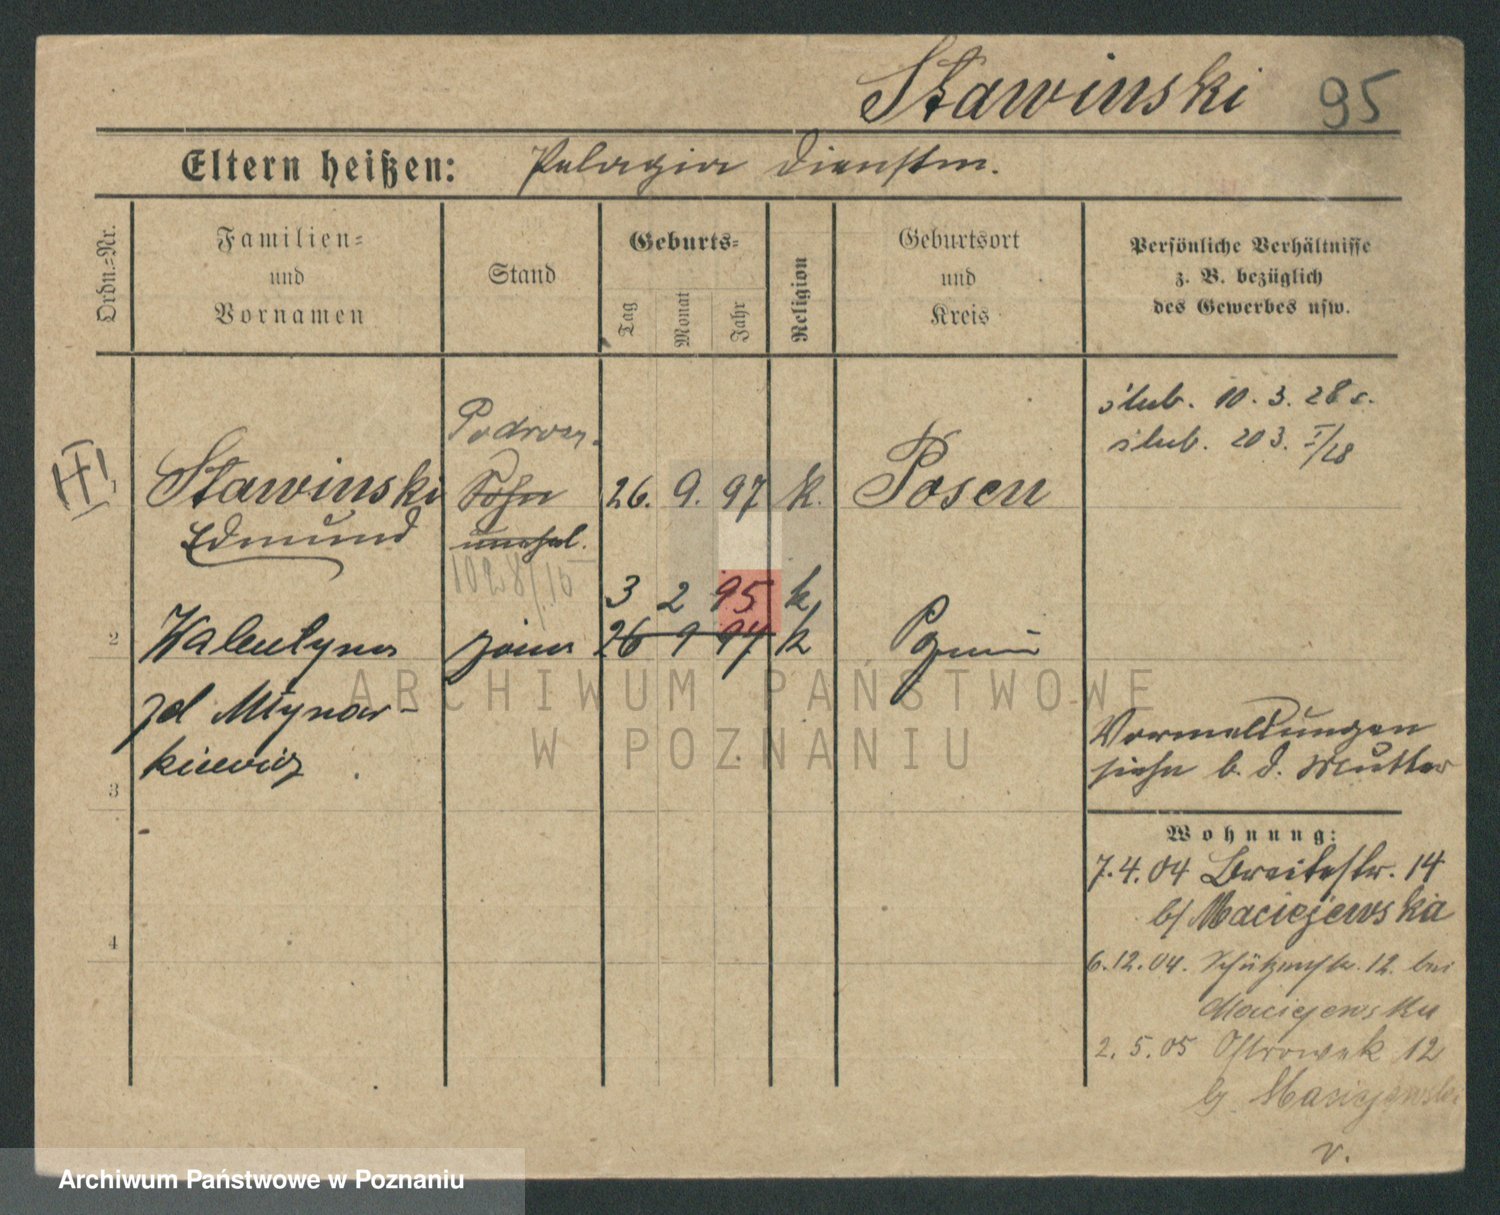 Stawinski 95
Eltern heißen: Pelagia Dienstm.
Ordn.-Nr.
Familien-
und
Vornamen
Stand
Geburts-
Tag
Monat
Jahr
Religion
Geburtsort
und
Kreis
Persönliche Verhältnisse
z. B. bezüglich
des Gewerbes usw.
ślub. 10. 3. 28 r.
ślub. 203. I/28
Stawinski Sohn 26. 9. 97 k. Posen
Edmund unehel.
3 2 95 k
2 Walentyna żona 26 9 97 k Poznań
zd Młynar-
kiewicz
3
4
Vormeldungen
siehe b. d. Mutter
Wohnung:
7.4.04 Breitestr. 14
b/ Maciejewska
6.12.04. Schützenstr. 12. bei
Maciejewska
2.5.05 Ostrowek 12
bj Maciejewska
v.
ARCHIWUM PAŃSTWOWE
W POZNANIU
Archiwum Państwowe w Poznaniu